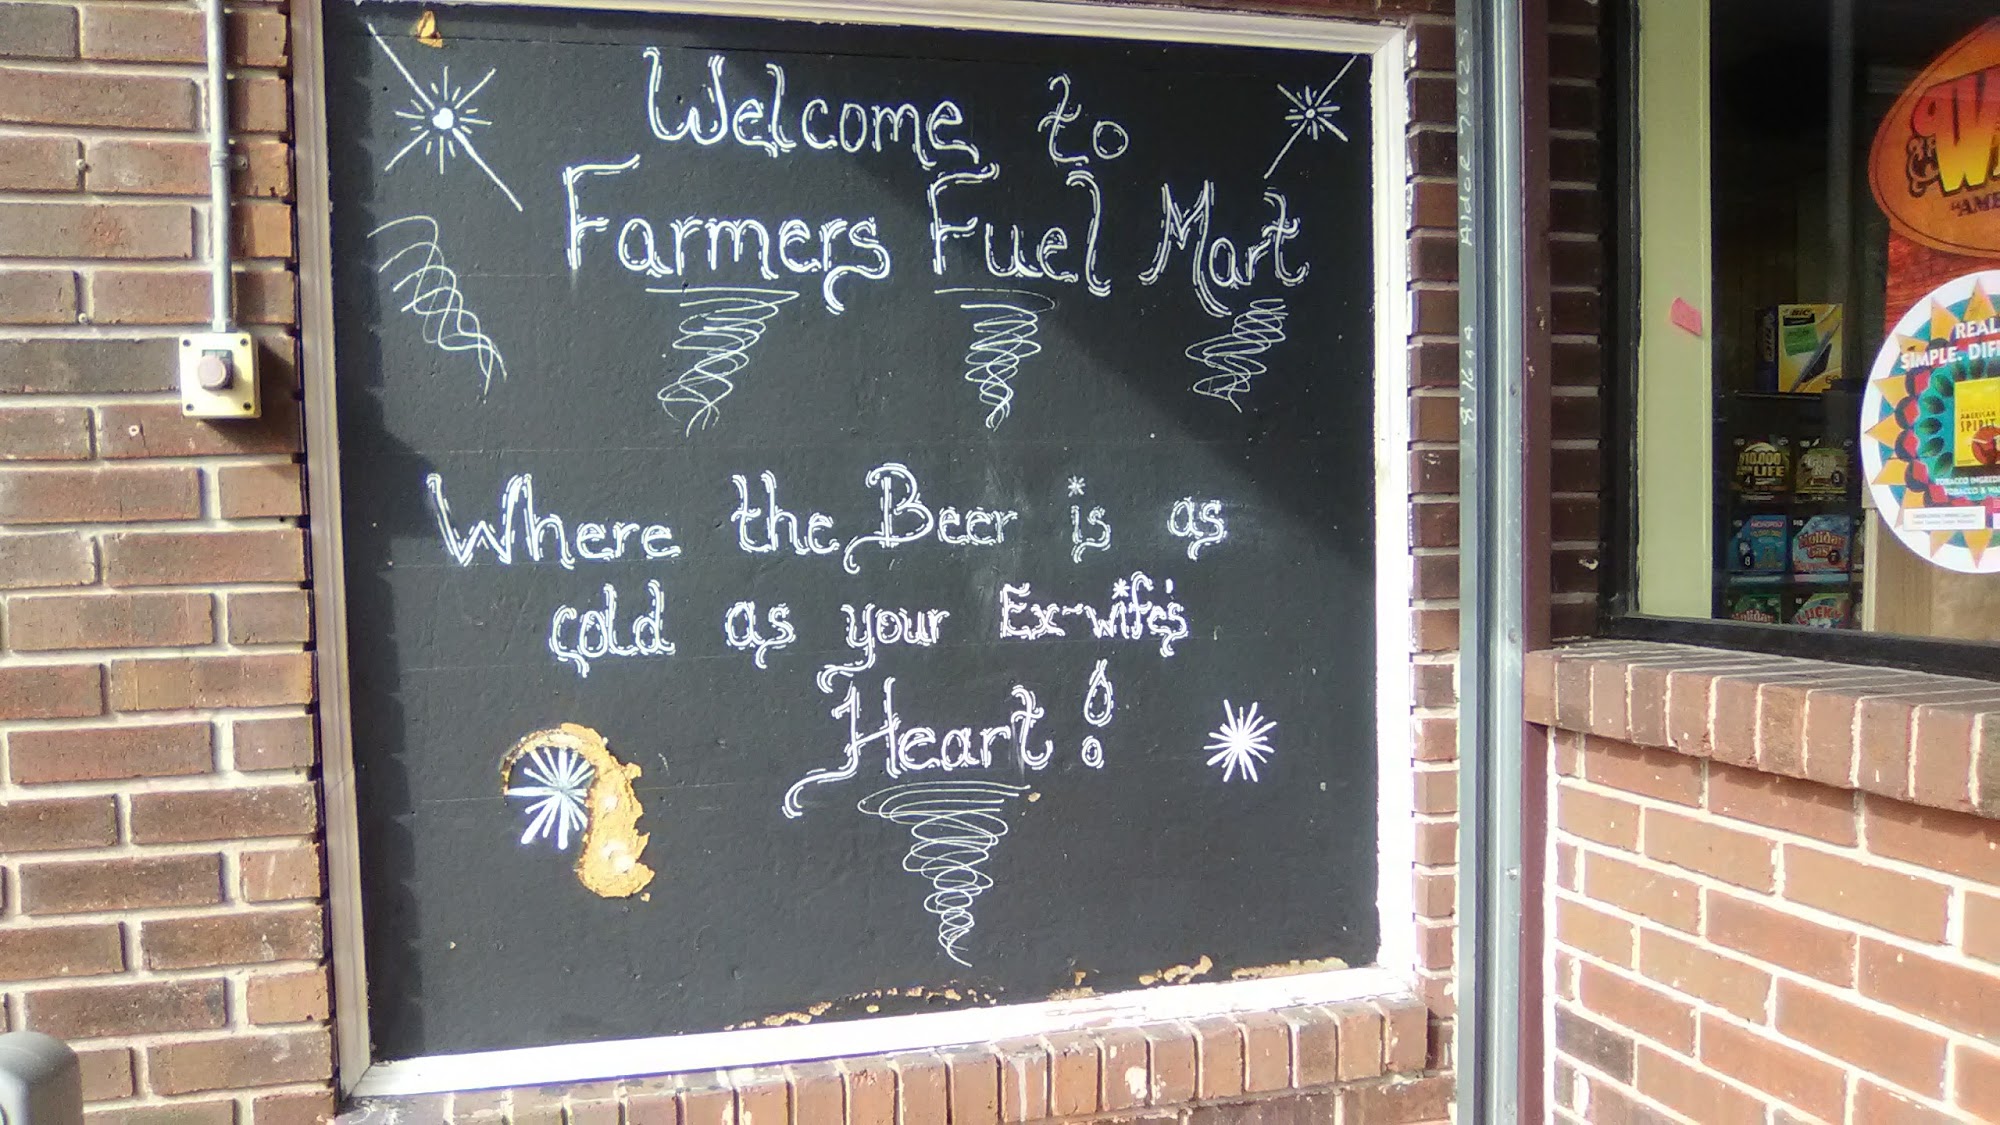 Welcome to
Farmers Fuel Mart
Where the Beer is as
cold as your Ex-wife's
Heart!
BIC
REAL.
SIMPLE. DIFF
AMERICAN
SPIRIT
$10,000
LIFE
MONOPOLY
Holiday